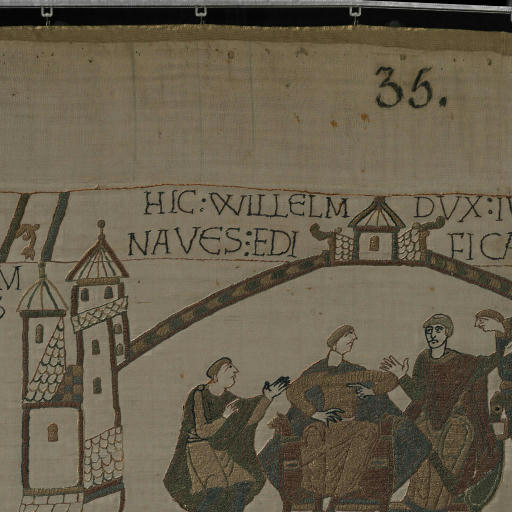 35.
HIC:WILLELM DVX:IV
NAVES:EDI FICA
M
S